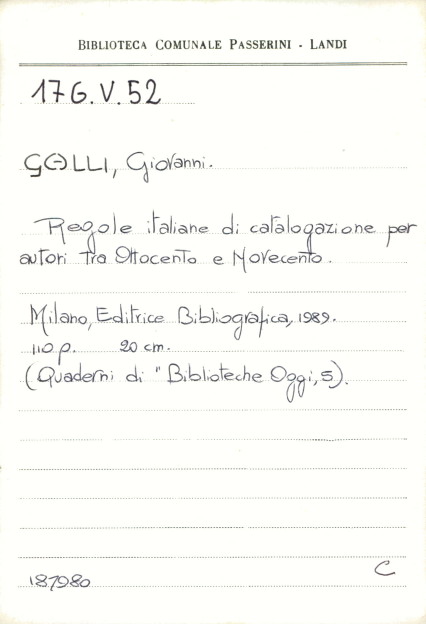 BIBLIOTECA COMUNALE PASSERINI - LANDI
17G.V.52
GALLI, Giovanni.
Regole italiane di catalogazione per
autori tra Ottocento e Novecento.
Milano, Editrice Bibliografica, 1989.
110 p. 20 cm.
(Quaderni di "Biblioteche Oggi, 5).
C
187980